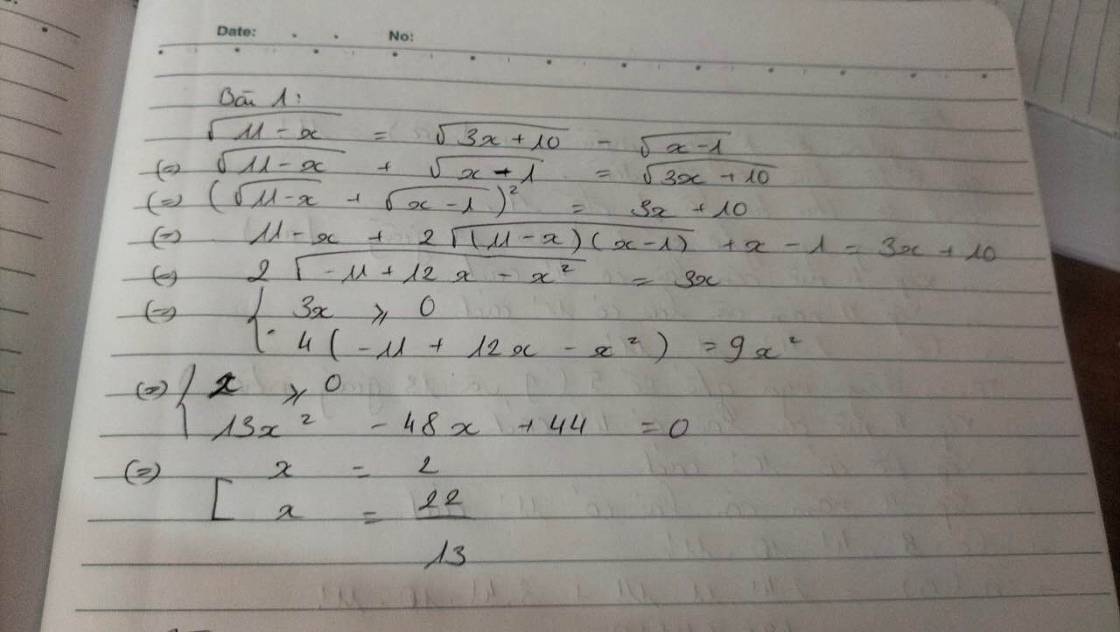 Date: No:
Bài 1:
√(11 - x) = √(3x + 10) - √(x - 1)
(=) √(11 - x) + √(x - 1) = √(3x + 10)
(=) (√(11 - x) + √(x - 1))² = 3x + 10
(=) 11 - x + 2√((11 - x)(x - 1)) + x - 1 = 3x + 10
(=) 2√(-11 + 12x - x²) = 3x
(=) { 3x ⩾ 0
4(-11 + 12x - x²) = 9x²
(=) { x ⩾ 0
13x² - 48x + 44 = 0
(=) [ x = 2
x = 22/13